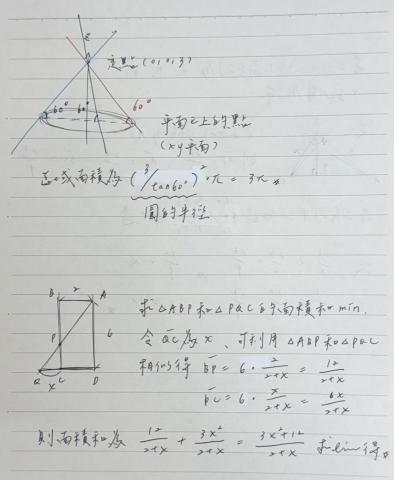 z
定點(0,0,3)
60° 60° 60°
平面E上的點
(xy平面)
區域面積為 (3/tan60°)²·π = 3π
圓的半徑
B 2 A
求△ABP和△PQC的面積和min.
P 6
令QC為x、可利用△ABP和△PQC
Q C D
x
相似得 BP = 6·2/(2+x) = 12/(2+x)
PC = 6·x/(2+x) = 6x/(2+x)
則面積和為 12/(2+x) + 3x²/(2+x) = (3x²+12)/(2+x)